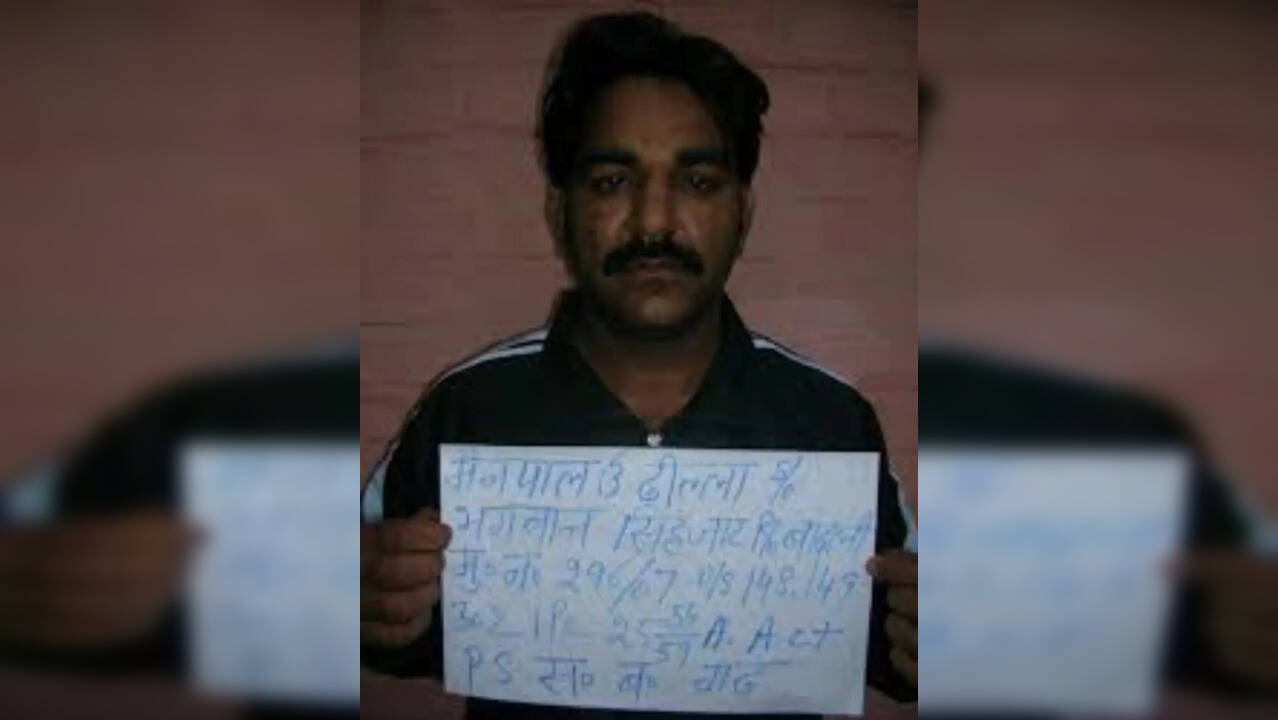 मनपाल उ ढील्ला s/o
भगवान सिंह जाट R/o बादली
मु॰ न॰ 296/07 U/S 148.149
302 IPC 25 54 59 A. Act
PS स॰ ब॰ गढ